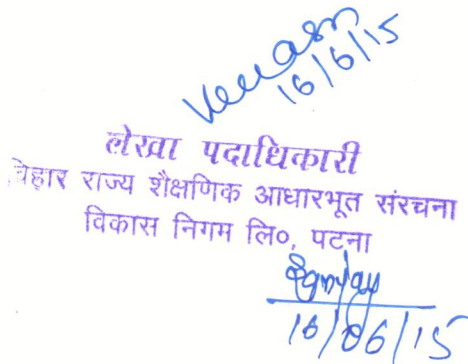 16/6/15
लेखा पदाधिकारी
बिहार राज्य शैक्षणिक आधारभूत संरचना
विकास निगम लि०, पटना
16/06/15